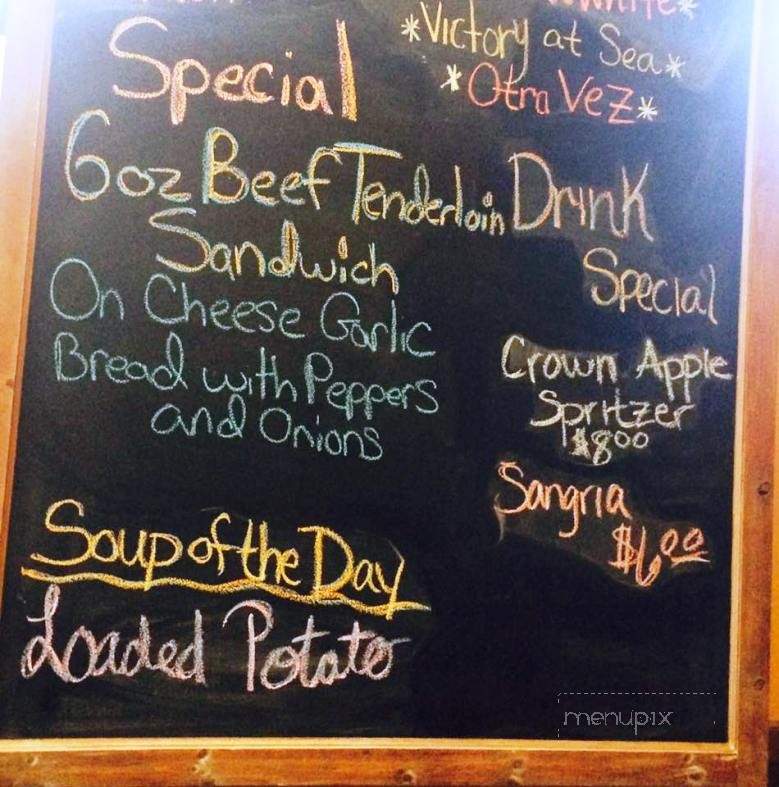 *Victory at Sea*
*Otra Vez*
Special
6oz Beef Tenderloin
Sandwich
On Cheese Garlic
Bread with Peppers
and Onions
Soup of the Day
Loaded Potato
Drink
Special
Crown Apple
Spritzer
$8.00
Sangria
$6.00
menupix